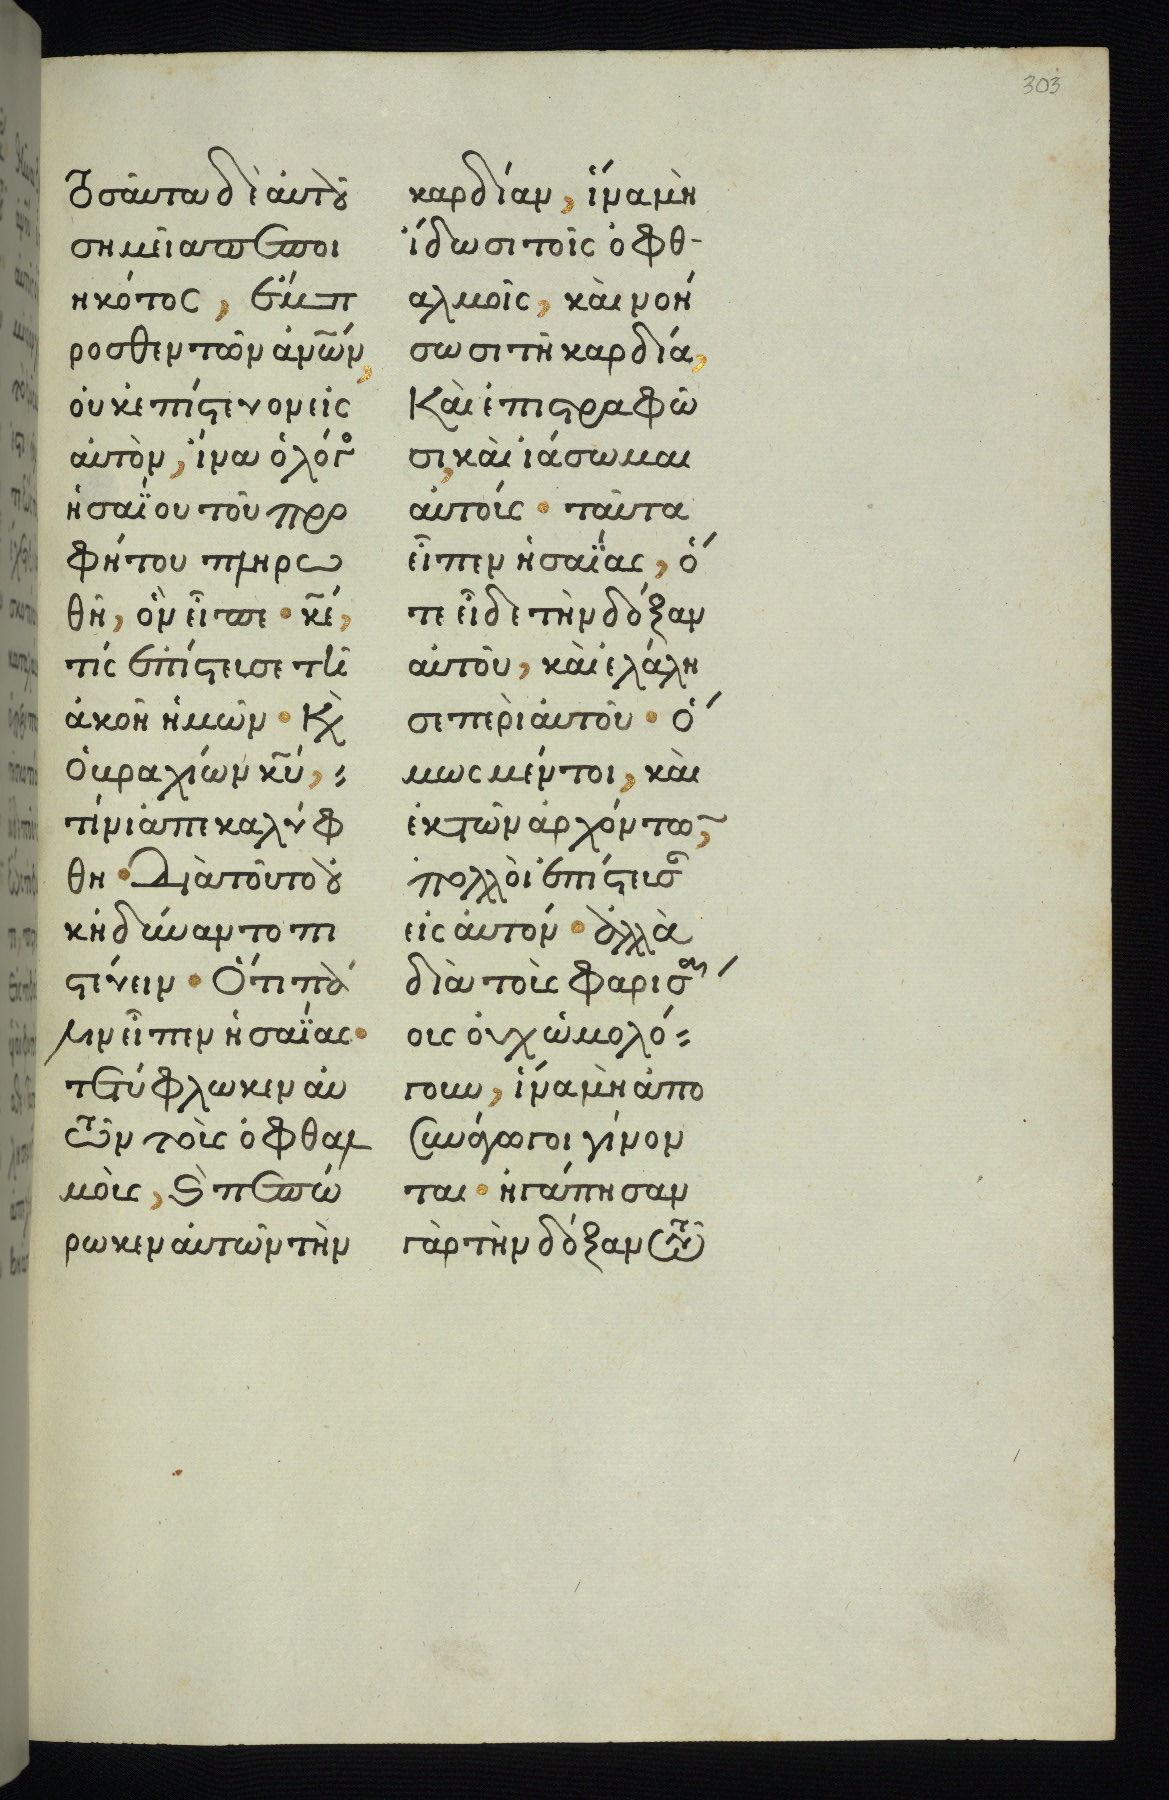 303
Τοσαῦτα δὲ ἀυτοῦ
σημεῖα πεποι
ηκότος, ἔμπ
ροσθεν τῶν ἀν̅ω̅ν,
ουκ ἐπίστευον εἰς
αὐτὸν, ἵνα ὁ λόγος
ἡσαΐου τοῦ προ
φήτου πληρω
θῆ, ὃν εἶπε · κ̅ε̅,
τίς ἐπίστευσε τῆ
ἀκοῆ ἡμῶν · Κὶ
ὁ βραχίων κ̅υ̅,
τίνι ἀπεκαλύφ
θη · Διὰ τοῦτο οὐ
κ ἠδύναντο πι
στεύειν · Ὅτι πά
λιν εἶπεν ἡσαΐας ·
τετύφλωκεν αὐ
τῶν τοὺς ὀφθαλ
μοὺς, καὶ πεπώ
ρωκεν ἀυτῶν τὴν
καρδίαν, ἵνα μὴ
ἴδωσι τοῖς ὀφθ-
αλμοῖς, καὶ νοή
σωσι τῆ καρδία,
Καὶ ἐπιστραφῶ
σι, καὶ ἰάσωμαι
αὐτούς · ταῦτα
εἶπεν ἡσαΐας, ὅ
τε εἶδε τὴν δόξαν
αὐτοῦ, καὶ ἐλάλη
σε περὶ ἀυτοῦ · Ὅ
μως μέντοι, καὶ
ἐκ τῶν ἀρχόντων,
πολλοὶ ἐπίστευσαν
εἰς ἀυτόν · ἀλλὰ
διὰ τοὺς φαρισαί
ους ὀυχ ὡμολό
γουν, ἵνα μὴ ἀπο
συνάγωγοι γένον
ται · ἠγάπησαν
γὰρ τὴν δόξαν τῶν